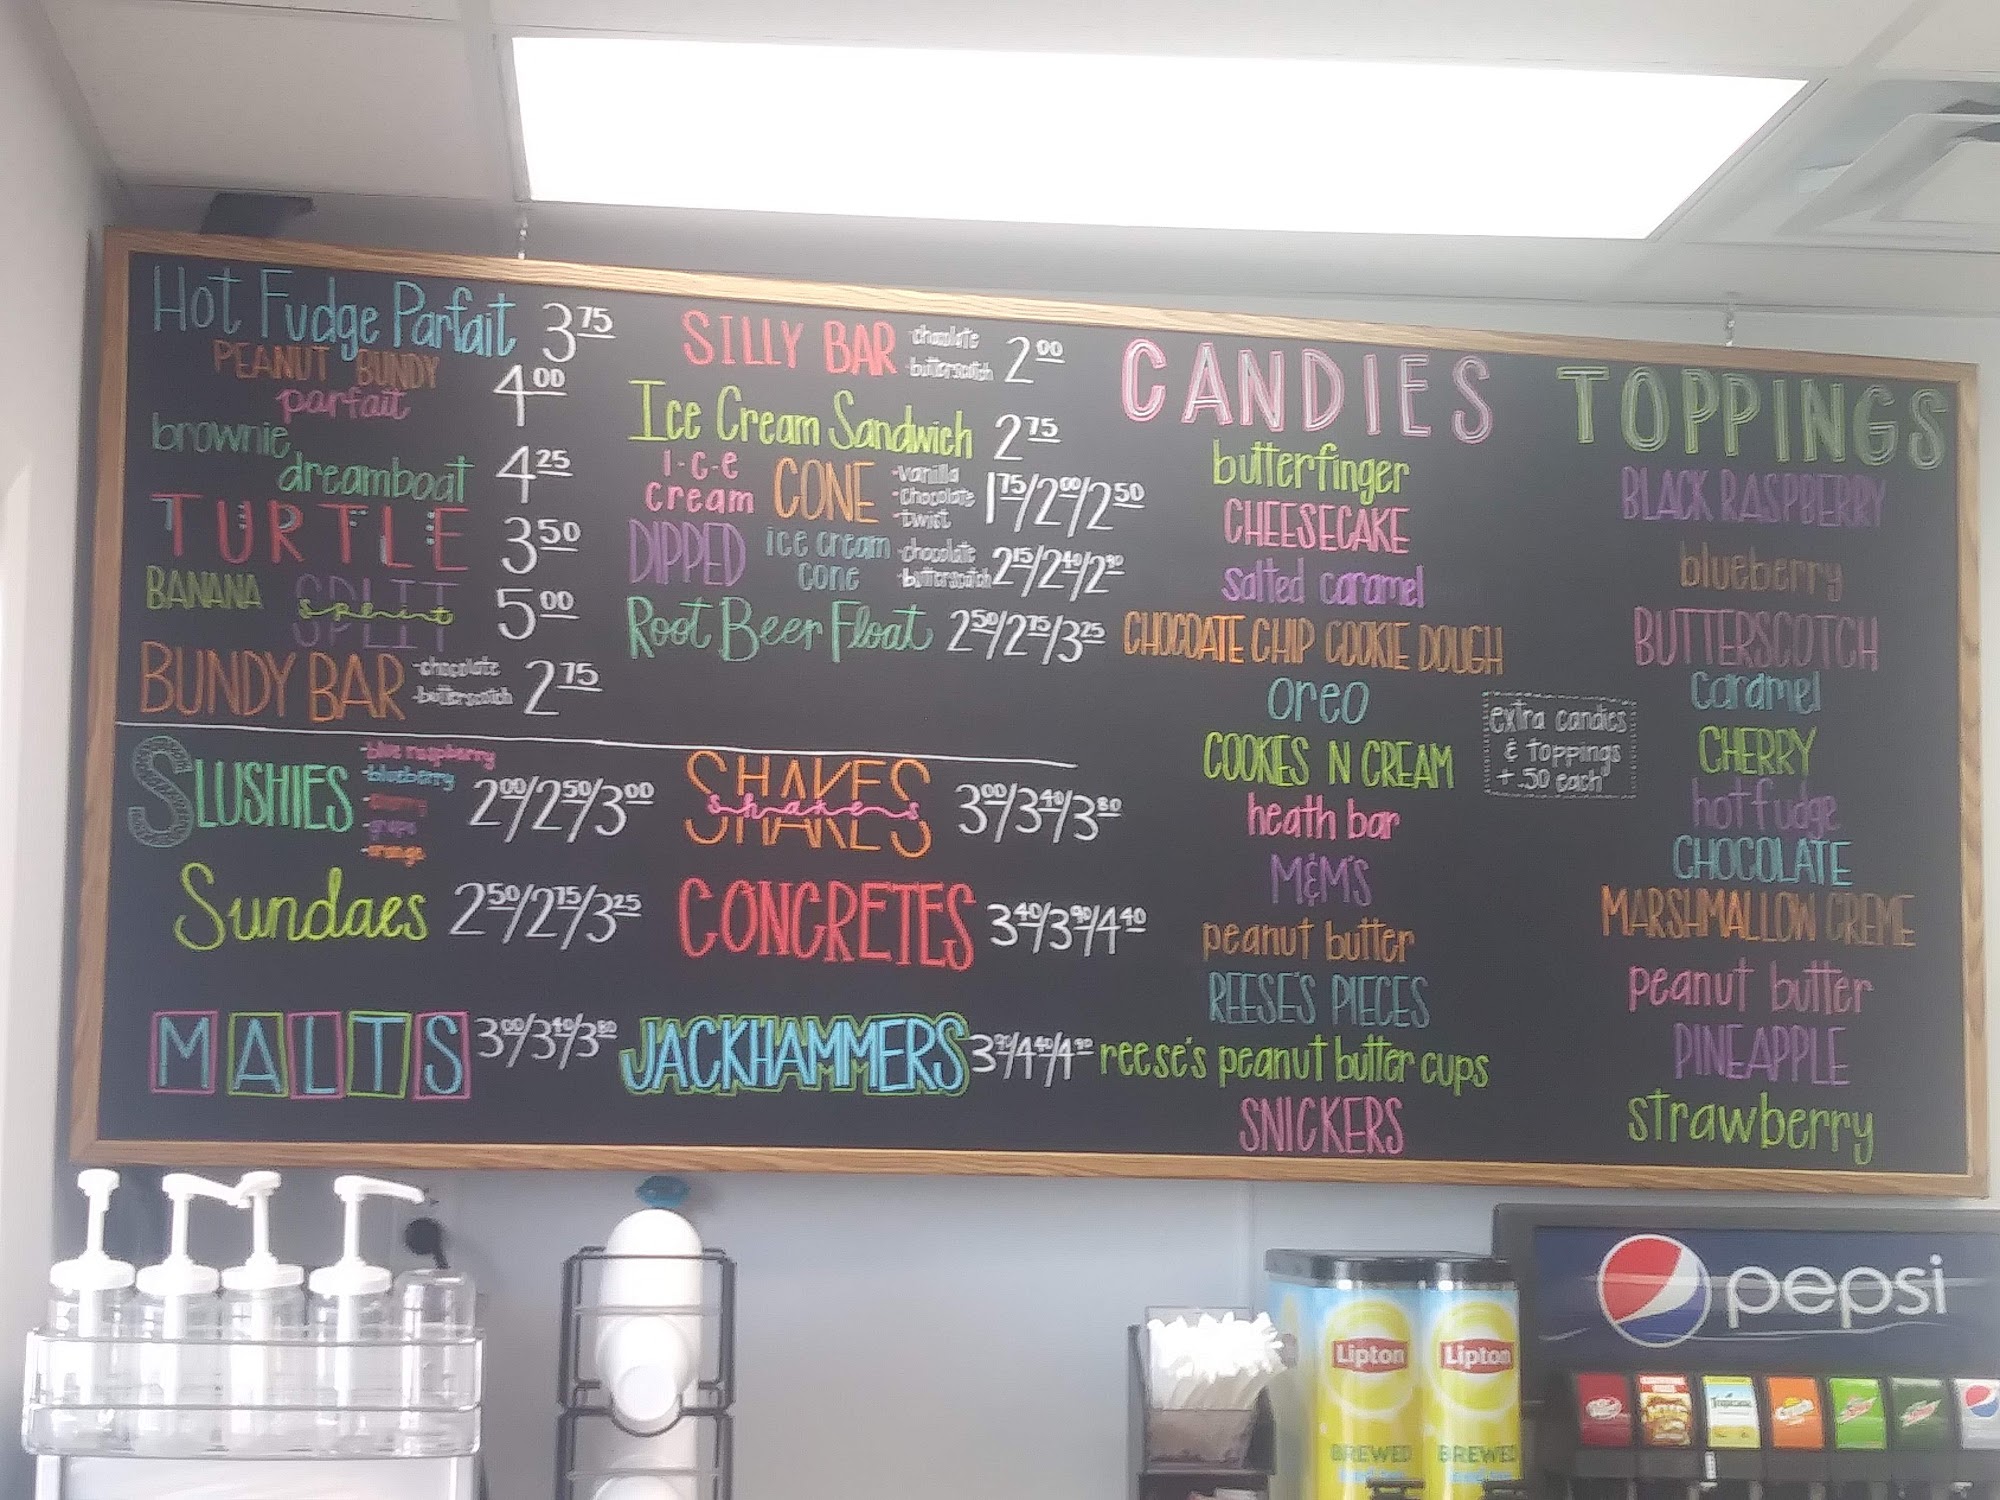 Hot Fudge Parfait 3.75
PEANUT BUNDY
parfait 4.00
brownie
dreamboat 4.25
TURTLE 3.50
BANANA SPLIT 5.00
BUNDY BAR -chocolate
-butterscotch 2.75
SILLY BAR -chocolate
-butterscotch 2.00
Ice Cream Sandwich 2.75
I-C-E
Cream CONE -vanilla
-chocolate
-twist 1.75/2.00/2.50
DIPPED ice cream
cone -chocolate
-butterscotch 2.15/2.40/2.90
Root Beer Float 2.50/2.75/3.25
SLUSHIES -blue raspberry
-blueberry
-cherry
-grape
-orange 2.00/2.50/3.00
Sundaes 2.50/2.75/3.25
MALTS 3.00/3.40/3.80
SHAKES
shakes 3.00/3.40/3.80
CONCRETES 3.40/3.90/4.40
JACKHAMMERS 3.90/4.40/4.90
CANDIES
butterfinger
CHEESECAKE
salted caramel
CHOCOLATE CHIP COOKIE DOUGH
oreo
COOKIES N CREAM
heath bar
M&M'S
peanut butter
REESE'S PIECES
reese's peanut butter cups
SNICKERS
extra candies
& toppings
+ .50 each
TOPPINGS
BLACK RASPBERRY
blueberry
BUTTERSCOTCH
caramel
CHERRY
hot fudge
CHOCOLATE
MARSHMALLOW CREME
peanut butter
PINEAPPLE
strawberry
pepsi
Lipton
Lipton
BREWED
BREWED
Tropicana